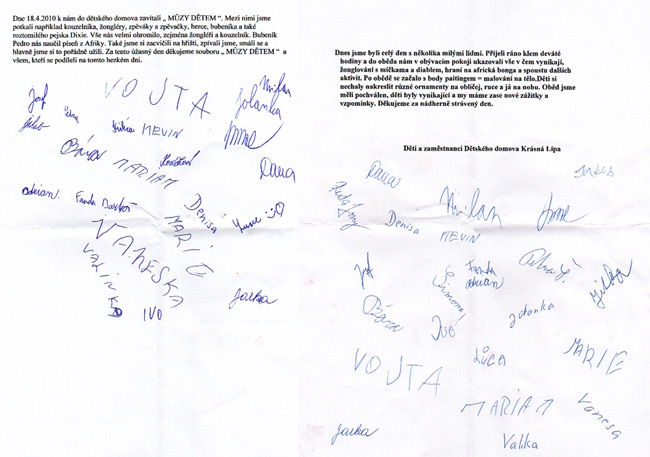 Dne 18.4.2010 k nám do dětského domova zavítali „ MŮZY DĚTEM ". Mezi nimi jsme
potkali například kouzelníka, žongléry, zpěváky a zpěvačky, herce, bubeníka a také
roztomilého pejska Dixie. Vše nás velmi ohromilo, zejména žongléři a kouzelník. Bubeník
Pedro nás naučil píseň z Afriky. Také jsme si zacvičili na hřišti, zpívali jsme, smáli se a
hlavně jsme si to pořádně užili. Za tento úžasný den děkujeme souboru „ MŮZY DĚTEM " a
všem, kteří se podíleli na tomto hezkém dni.
VOJTA
Milan
Jolanka
MEVIN
MARIAM
Dana
Denisa
MARIE
VANESKA
VALINKA
IVO
Jarka
Dnes jsme byli celý den s několika milými lidmi. Přijeli ráno klem deváté
hodiny a do oběda nám v obývacím pokoji ukazovali vše v čem vynikají,
žonglování s míčkama a diablem, hraní na africká bonga a spoustu dalších
aktivit. Po obědě se začalo s body paitingem = malování na tělo.Děti si
nechaly nakreslit různé ornamenty na obličej, ruce a já na nohu. Oběd jsme
měli pochválen, děti byly vynikající a my máme zase nové zážitky a
vzpomínky. Děkujeme za nádherně strávený den.
Děti a zaměstnanci Dětského domova Krásná Lípa
Dana
Milan
Denisa
MEVIN
Fanda
Simona
Ivo
VOJTA
LUCA
MARIE
MARIAM
Vanesa
Jarka
Valika